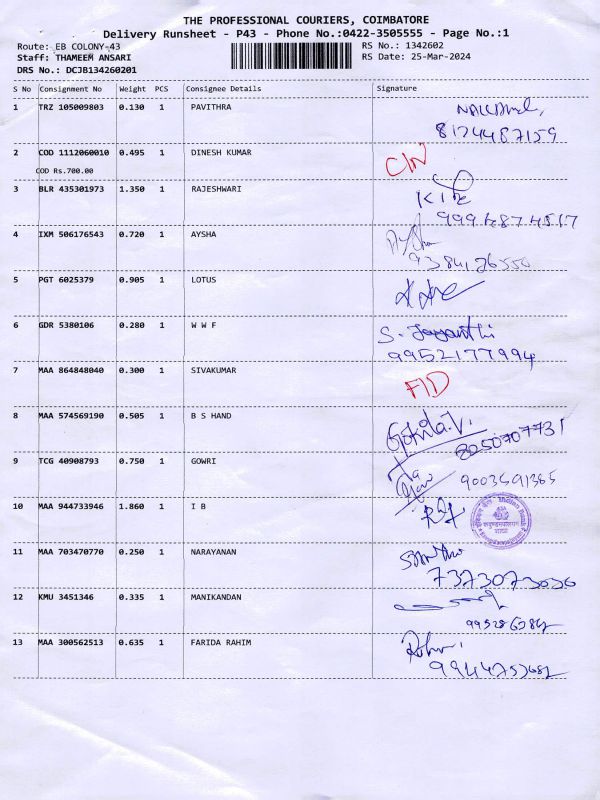 THE PROFESSIONAL COURIERS, COIMBATORE
Delivery Runsheet - P43 - Phone No.:0422-3505555 - Page No.:1
Route: EB COLONY-43 RS No.: 1342602
Staff: THAMEEM ANSARI RS Date: 25-Mar-2024
DRS No.: DCJB134260201
S No Consignment No Weight PCS Consignee Details Signature
1 TRZ 105009803 0.130 1 PAVITHRA
8124487159
2 COD 1112060010 0.495 1 DINESH KUMAR
COD Rs.700.00
3 BLR 435301973 1.350 1 RAJESHWARI
4 IXM 506176543 0.720 1 AYSHA Aysha
9384126550
5 PGT 6025379 0.905 1 LOTUS
6 GDR 5380106 0.280 1 W W F S. Jayanthi
9952177994
7 MAA 864848040 0.300 1 SIVAKUMAR
8 MAA 574569190 0.505 1 B S HAND Gokila.V.
8250707731
9 TCG 40908793 0.750 1 GOWRI
9003591365
10 MAA 944733946 1.860 1 I B
11 MAA 703470770 0.250 1 NARAYANAN
7373073036
12 KMU 3451346 0.335 1 MANIKANDAN
13 MAA 300562513 0.635 1 FARIDA RAHIM